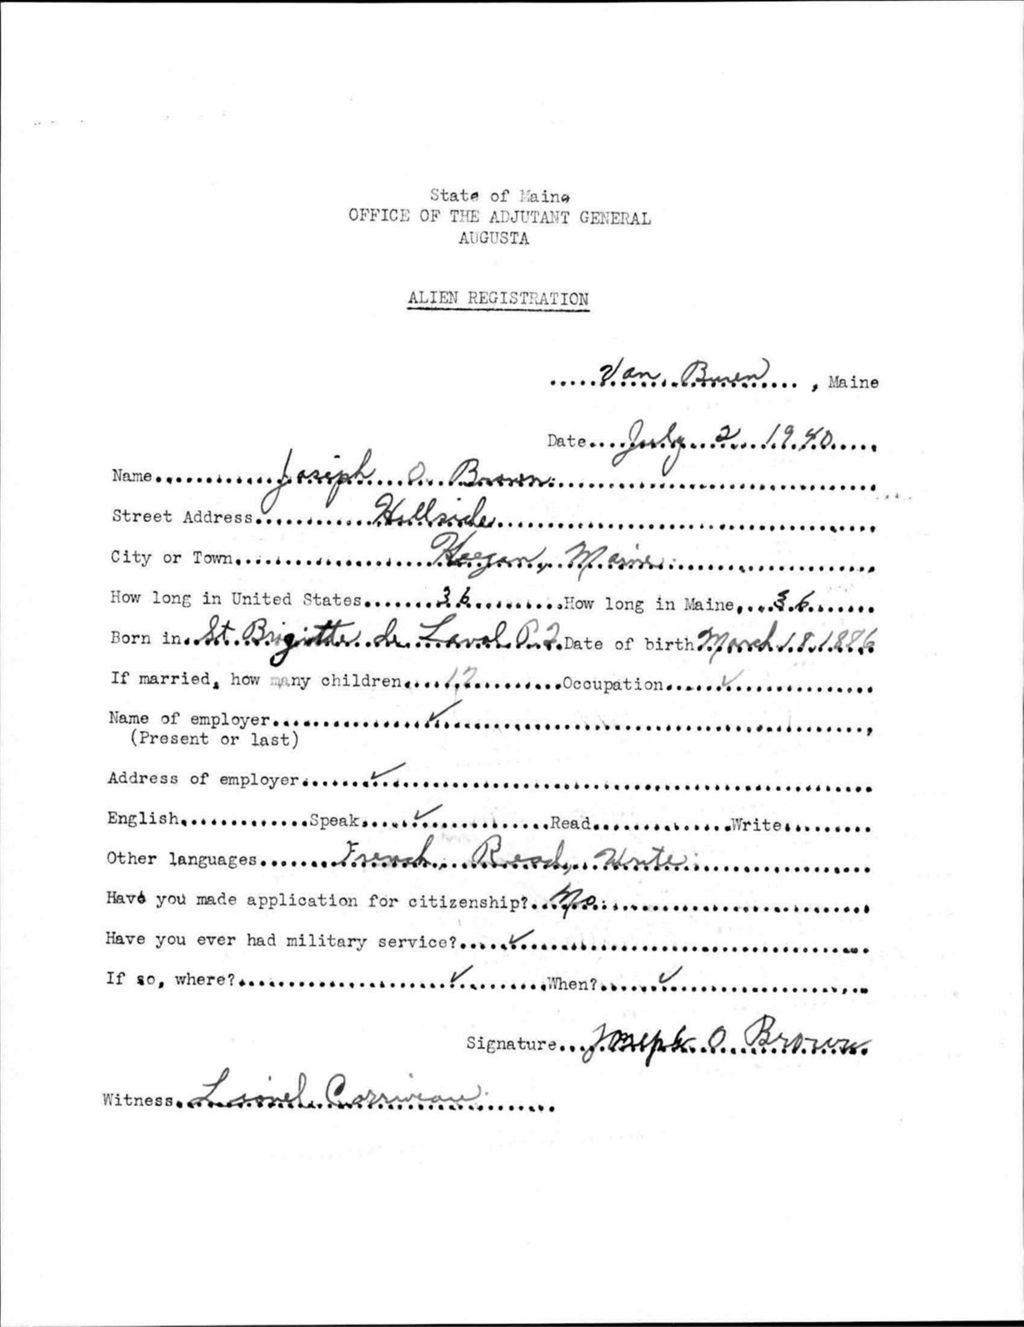 State of Maine
OFFICE OF THE ADJUTANT GENERAL
AUGUSTA
ALIEN REGISTRATION
Van Buren, Maine
Date July 2 1940
Name Joseph O Brown
Street Address Hillside
City or Town Keegan, Maine
How long in United States 36 How long in Maine 36
Born in St. Brigitte de Laval P.Q. Date of birth March 18, 1886
If married, how many children 12 Occupation ✓
Name of employer ✓
(Present or last)
Address of employer ✓
English Speak ✓ Read Write
Other languages French, Read, Write
Have you made application for citizenship? No
Have you ever had military service? ✓
If so, where? ✓ When? ✓
Signature Joseph O Brown
Witness Lionel Corriveau